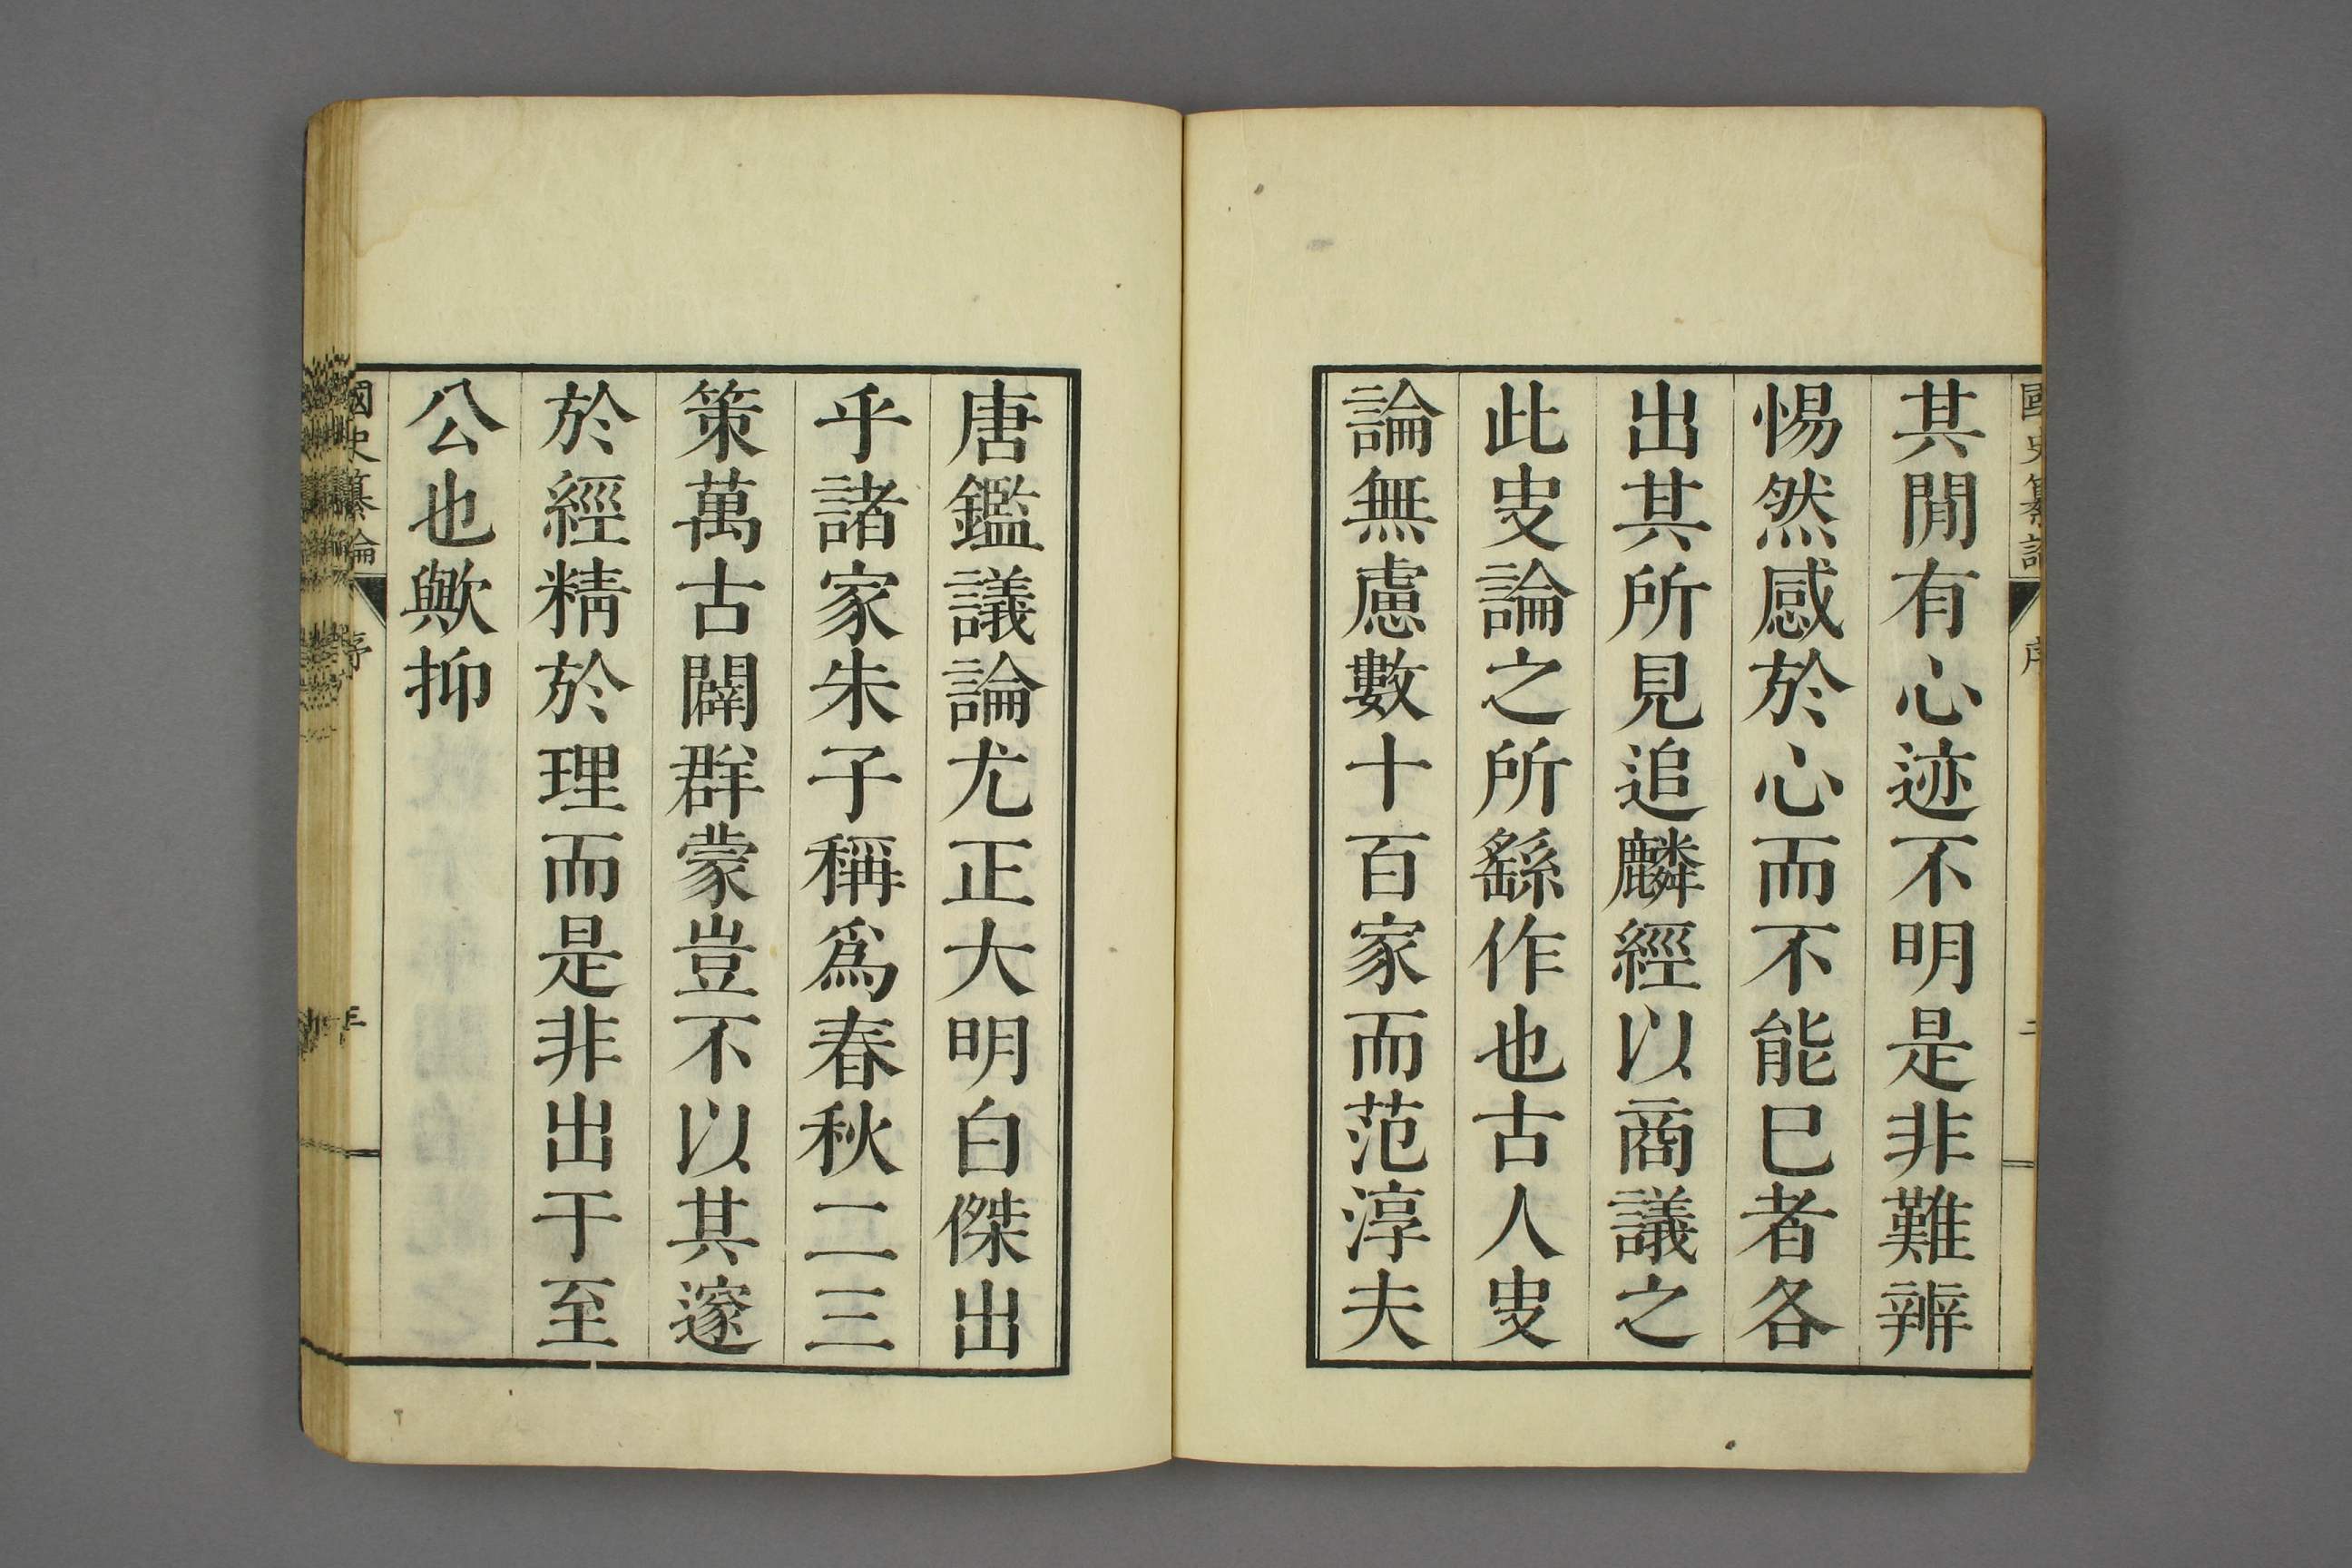 其閒有心迹不明是非難辨
惕然感於心而不能已者各
出其所見追麟經以商議之
此史論之所繇作也古人史
論無慮數十百家而范淳夫
唐鑑議論尤正大明白傑出
乎諸家朱子稱爲春秋二三
策萬古闢群蒙豈不以其邃
於經精於理而是非出于至
公也歟抑
國史纂論
序